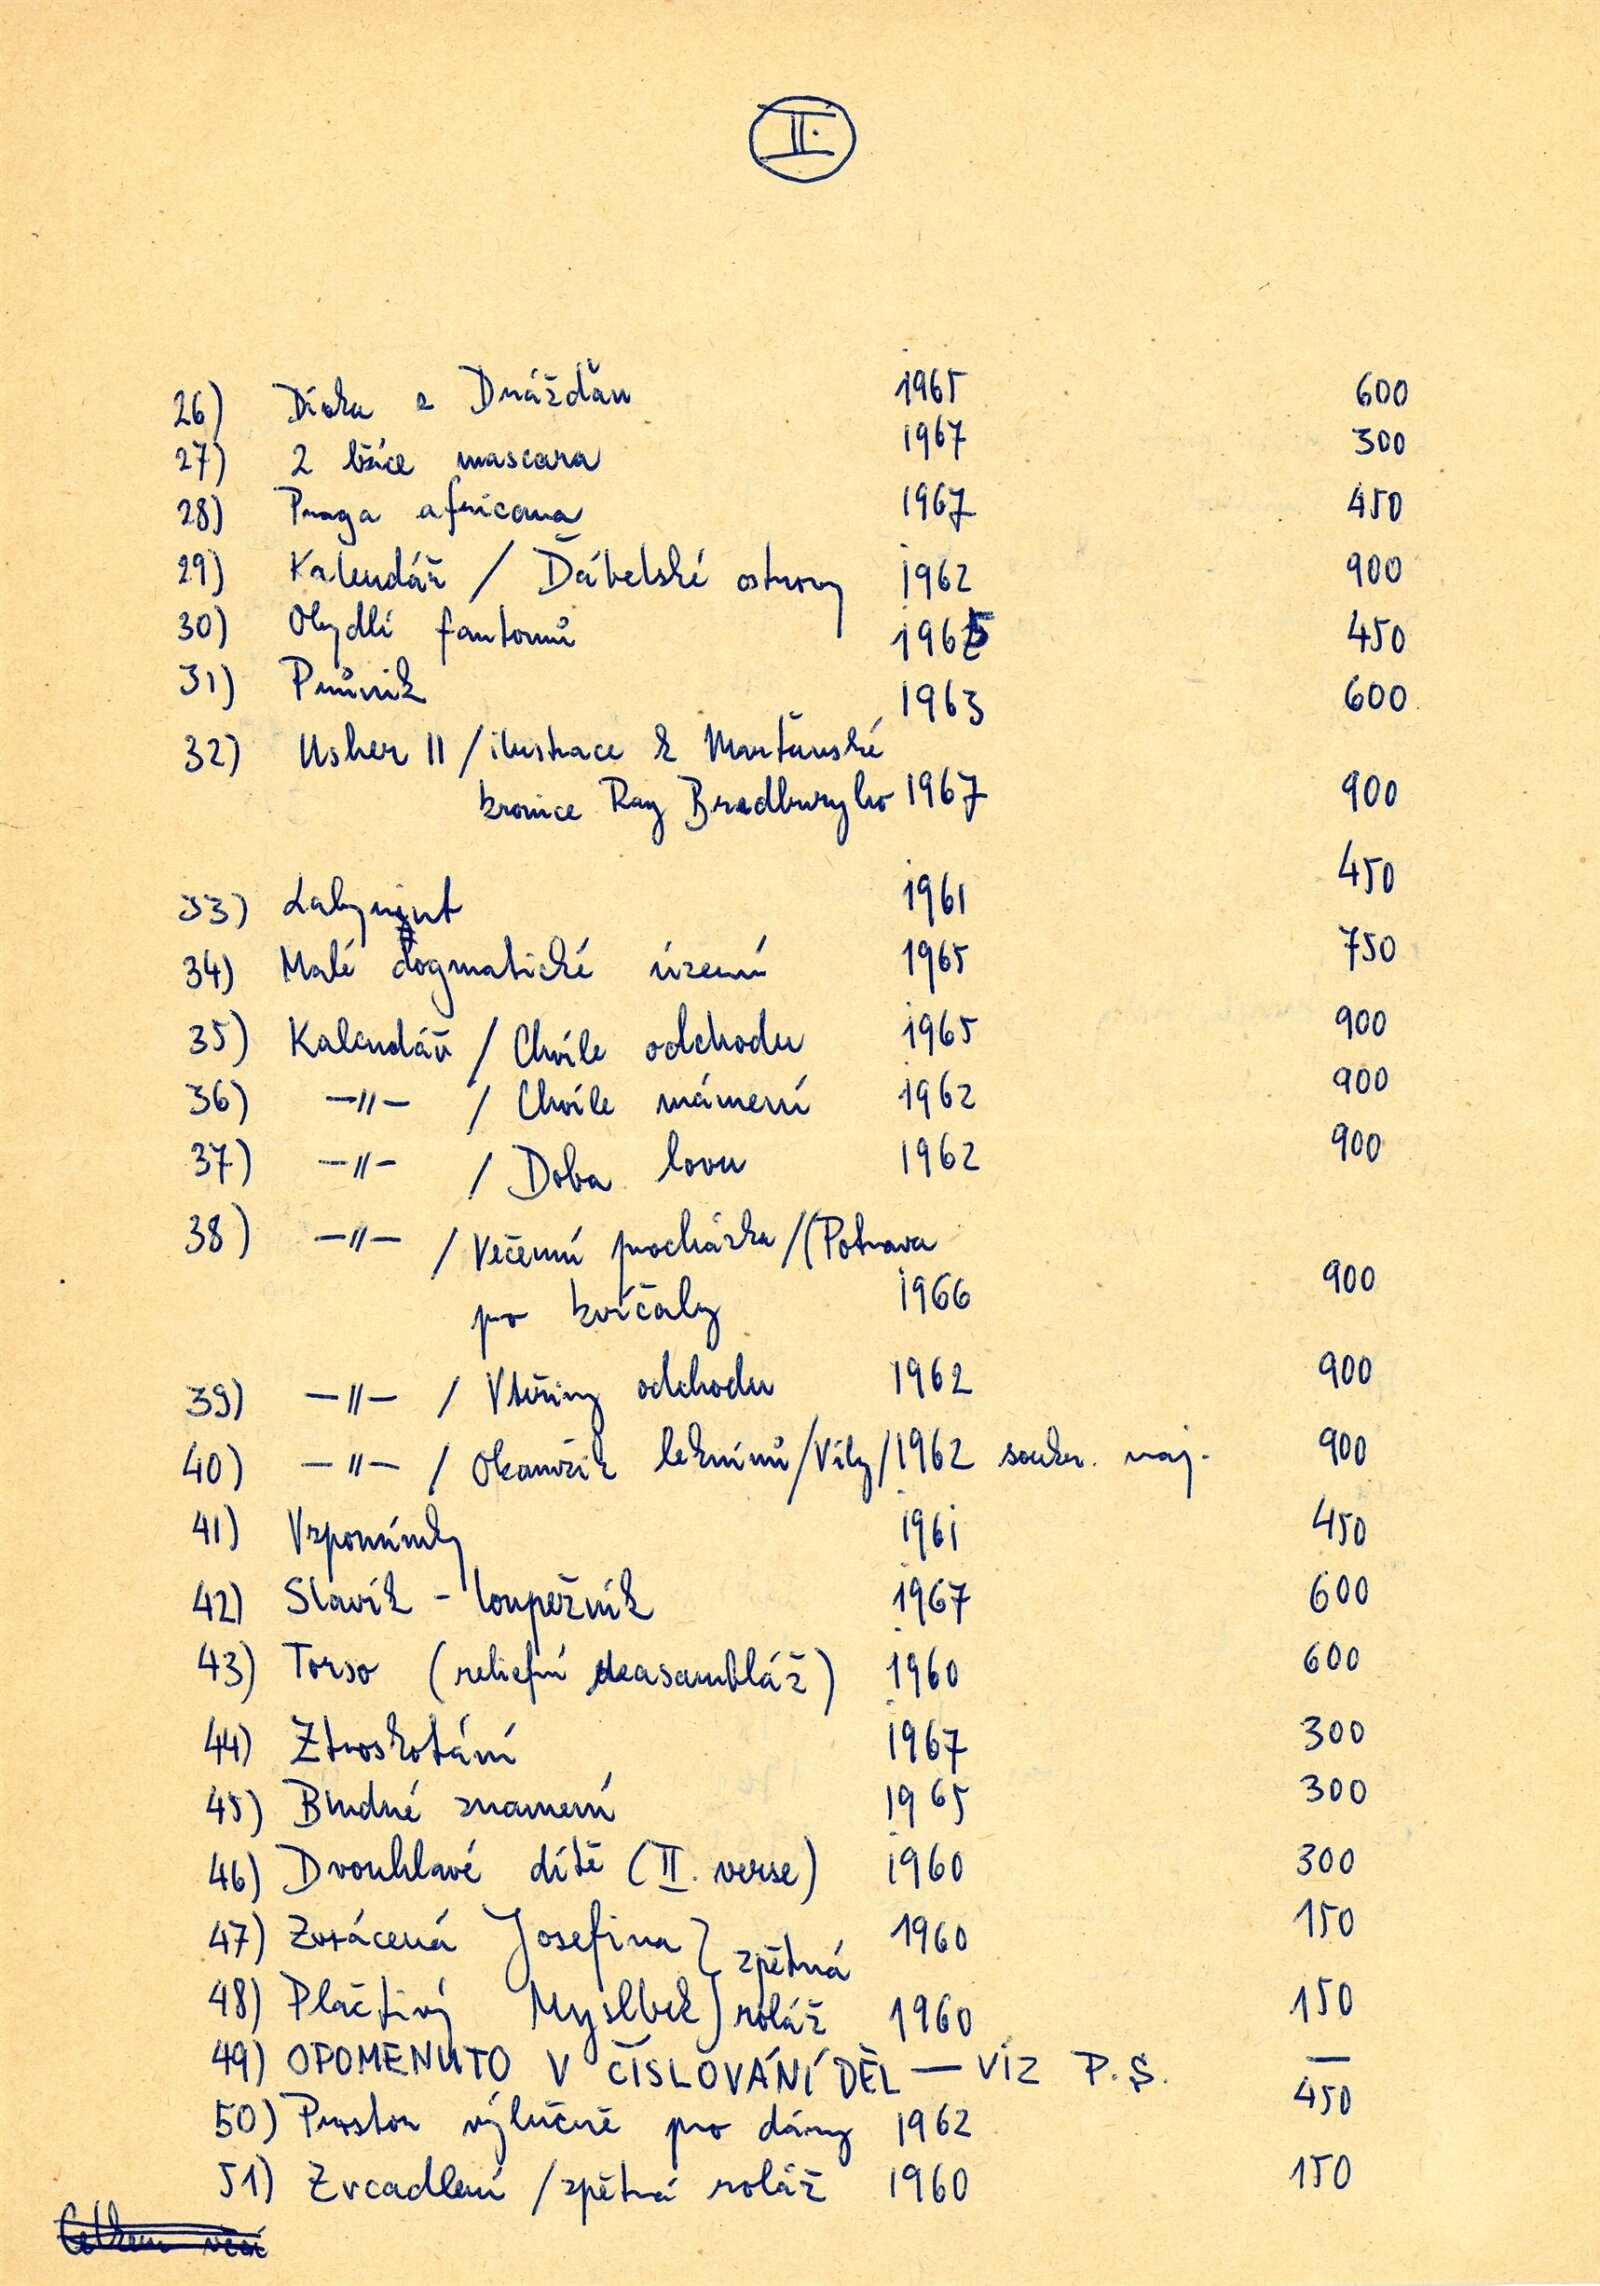 II.
26) Dívka z Drážďan 1965 600
27) 2 lžíce mascara 1967 300
28) Praga africana 1967 450
29) Kalendář / Ďábelské ostrovy 1962 900
30) Obydlí fantomů 1965 450
31) Průnik 1963 600
32) Usher II / ilustrace k Marťanské
kronice Ray Bradburyho 1967 900
33) Labyrint 1961 450
34) Malé dogmatické území 1965 750
35) Kalendář / Chvíle odchodu 1965 900
36) —〃— / Chvíle mámení 1962 900
37) —〃— / Doba lovu 1962 900
38) —〃— / Večerní procházka / (Potrava
pro kvíčaly 1966 900
39) —〃— / Vteřiny odchodu 1962 900
40) —〃— / Okamžik leknínů / Víly / 1962 soukr. maj. 900
41) Vzpomínky 1961 450
42) Slavík - loupežník 1967 600
43) Torso (reliefní deasambláž) 1960 600
44) Ztroskotání 1967 300
45) Bludné znamení 1965 300
46) Dvouhlavé dítě (II. verse) 1960 300
47) Zvrácená Josefina } zpětná 1960 150
48) Plačtivý Myslbek } roláž 1960 150
49) OPOMENUTO V ČÍSLOVÁNÍ DĚL — VÍZ P.S. —
50) Prostor výlučně pro dámy 1962 450
51) Zrcadlení / zpětná roláž 1960 150